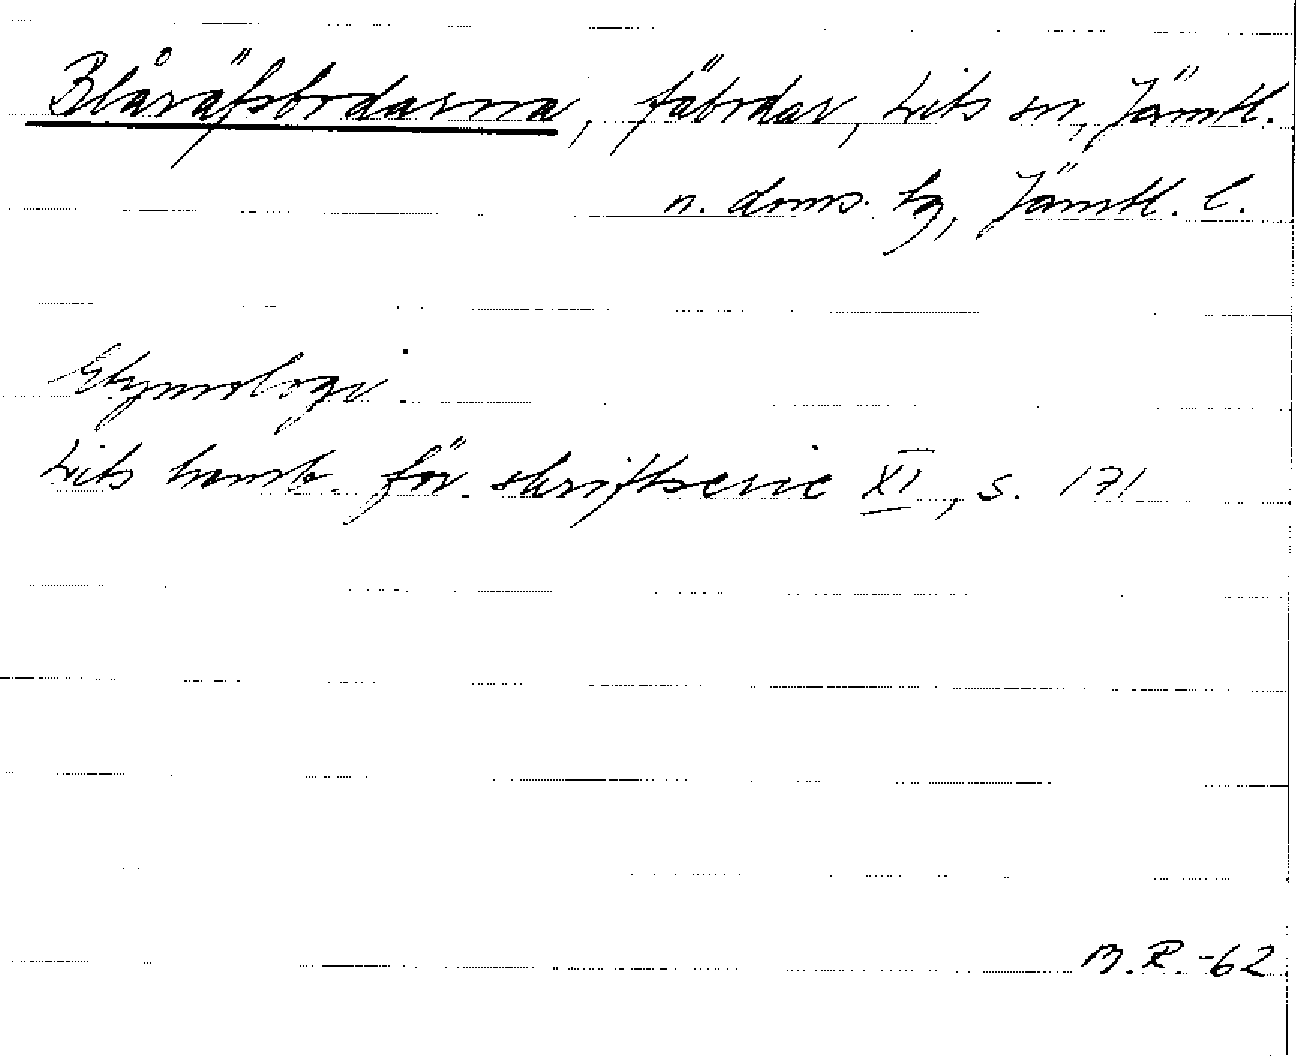 Blåräfsbodarna, fäbodar, Lits sn, Jämtl.
n. doms. tg, Jämtl. l.
Etymologi
Lits hemb. för. skriftserie XI, s. 171
M.R. -62